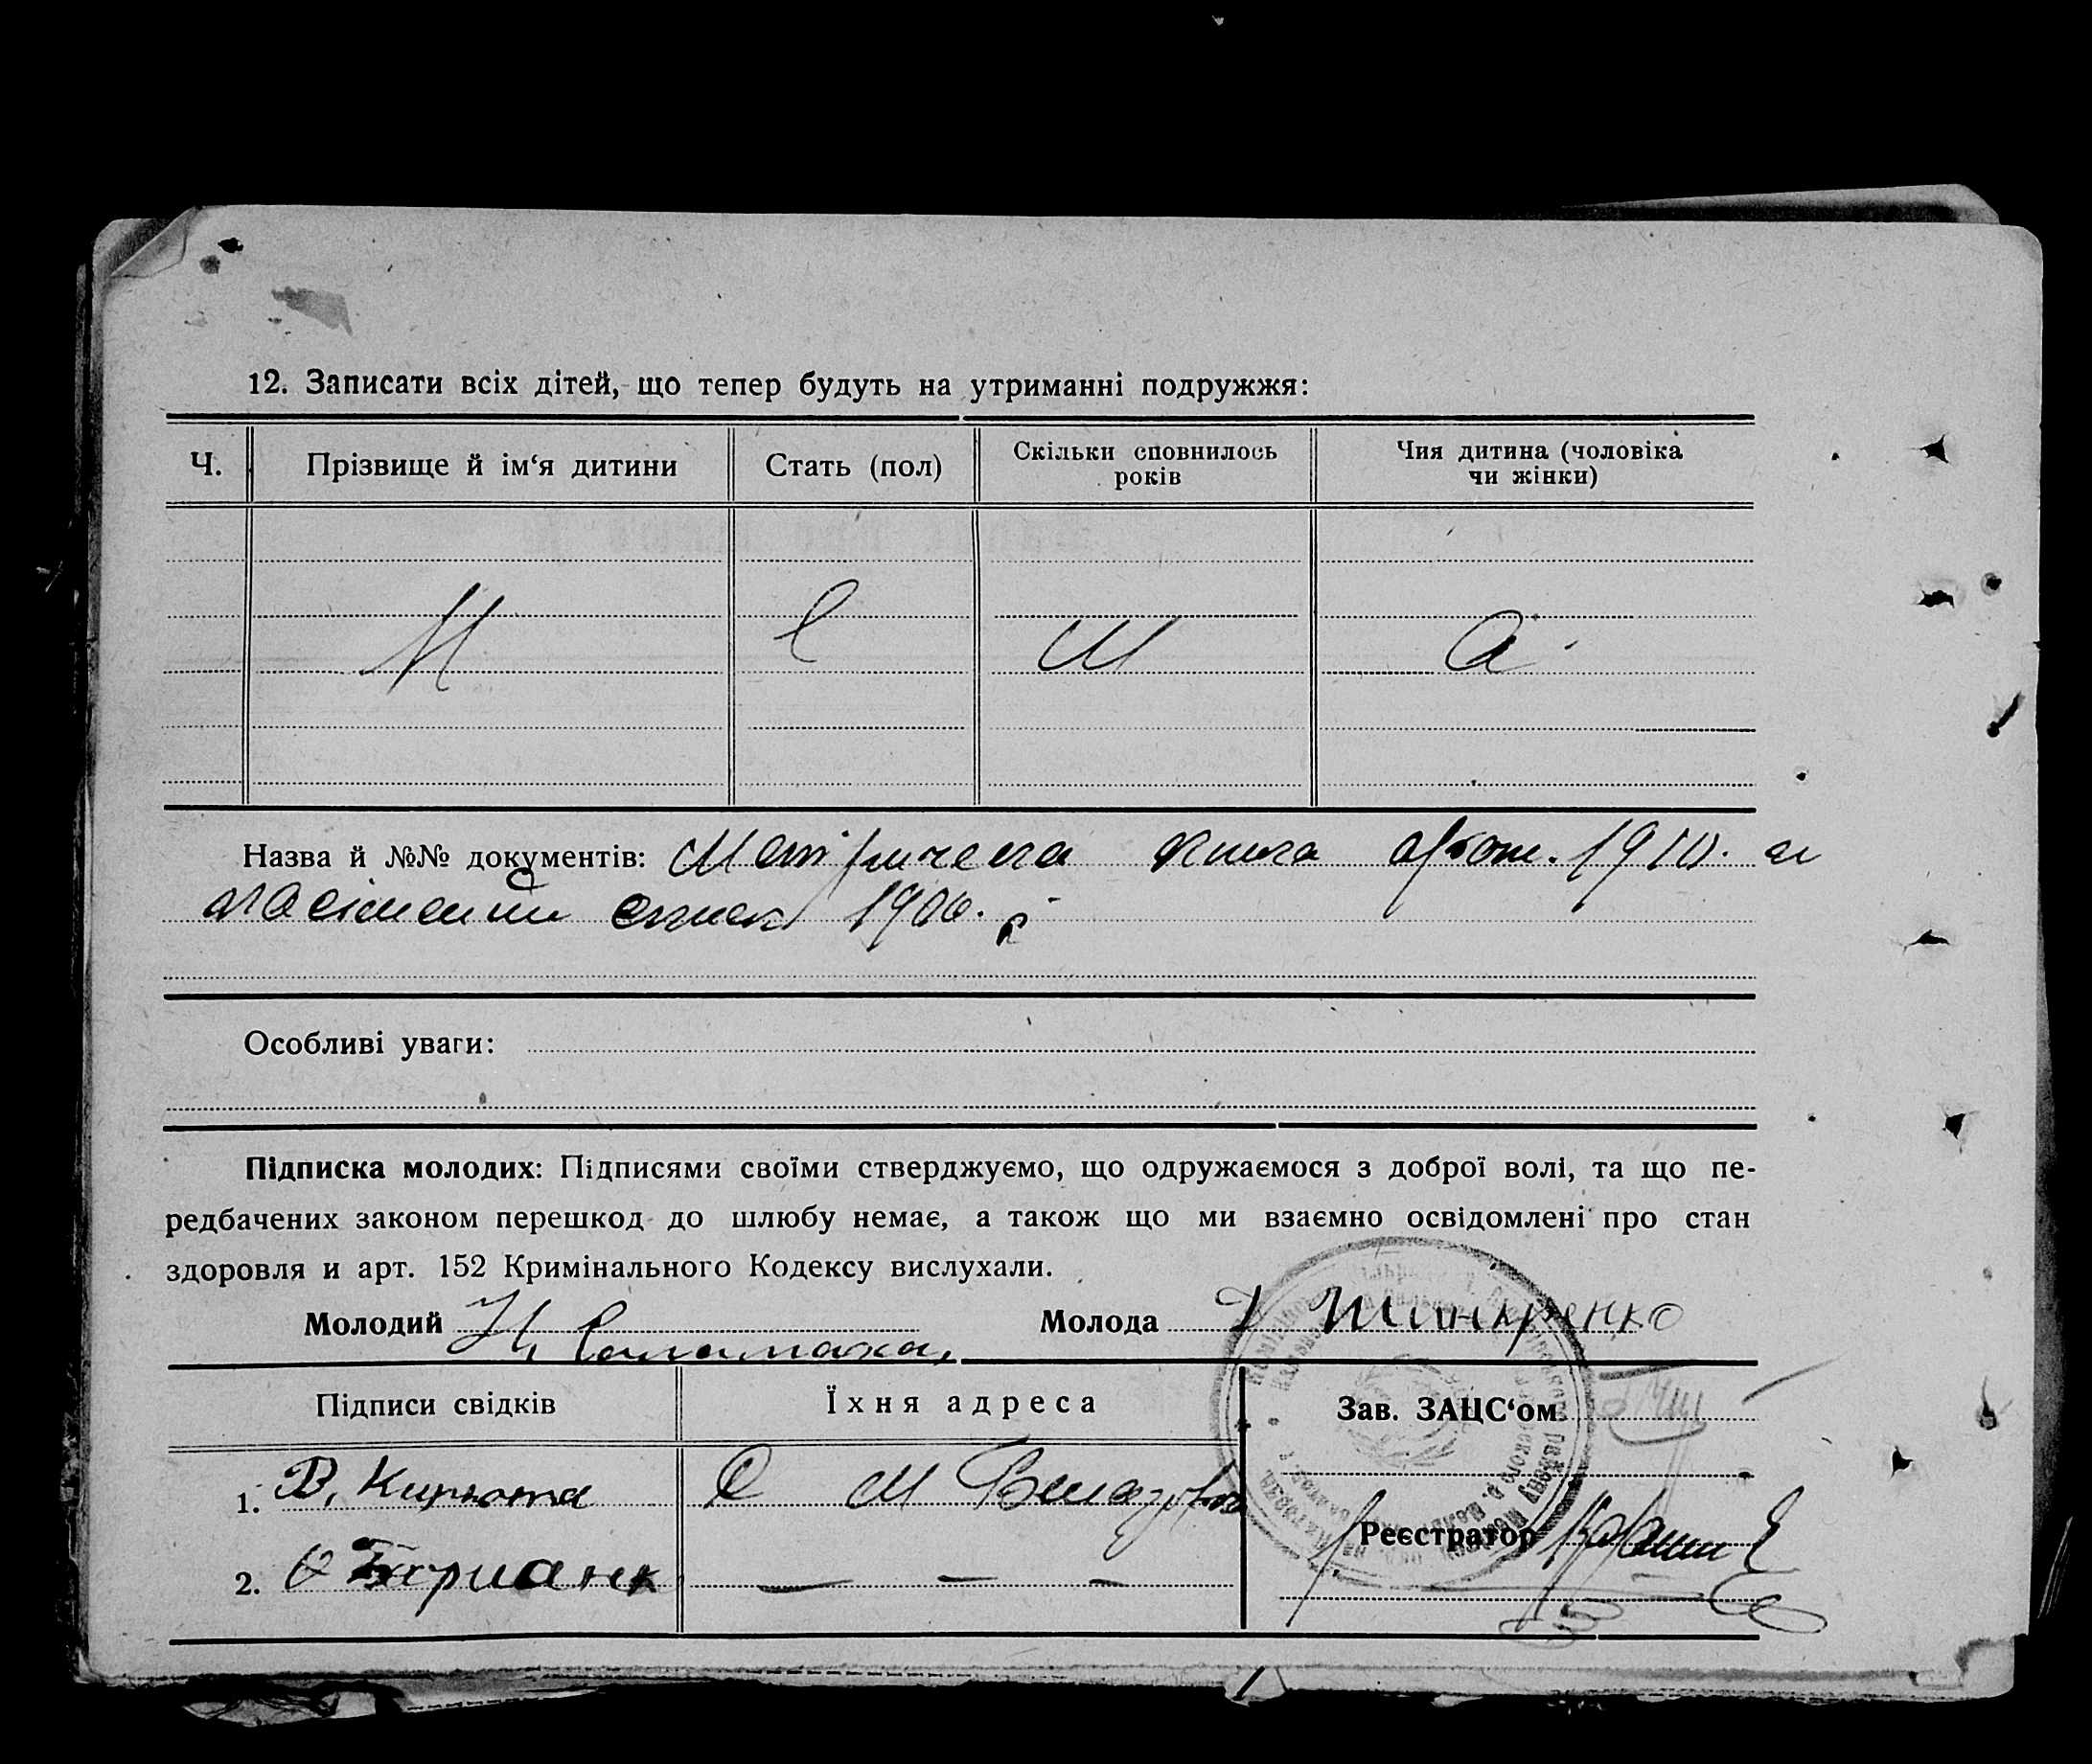 12. Записати всіх дітей, що тепер будуть на утриманні подружжя:
Ч.
Прізвище й ім‘я дитини
Стать (пол)
Скільки сповнилось
років
Чия дитина (чоловіка
чи жінки)
Н е м а
Назва й №№ документів: Метрична книга 1910. и
список 1906. г
Особливі уваги:
Підписка молодих: Підписями своїми стверджуємо, що одружаємося з доброї волі, та що пе-
редбачених законом перешкод до шлюбу немає, а також що ми взаємно освідомлені про стан
здоровля и арт. 152 Кримінального Кодексу вислухали.
Молодий Н. Саламаха
Молода Шинкренко
Підписи свідків
Їхня адреса
Зав. ЗАЦС‘ом
1. В. Кирюта С М
2. О — — —
Реєстратор